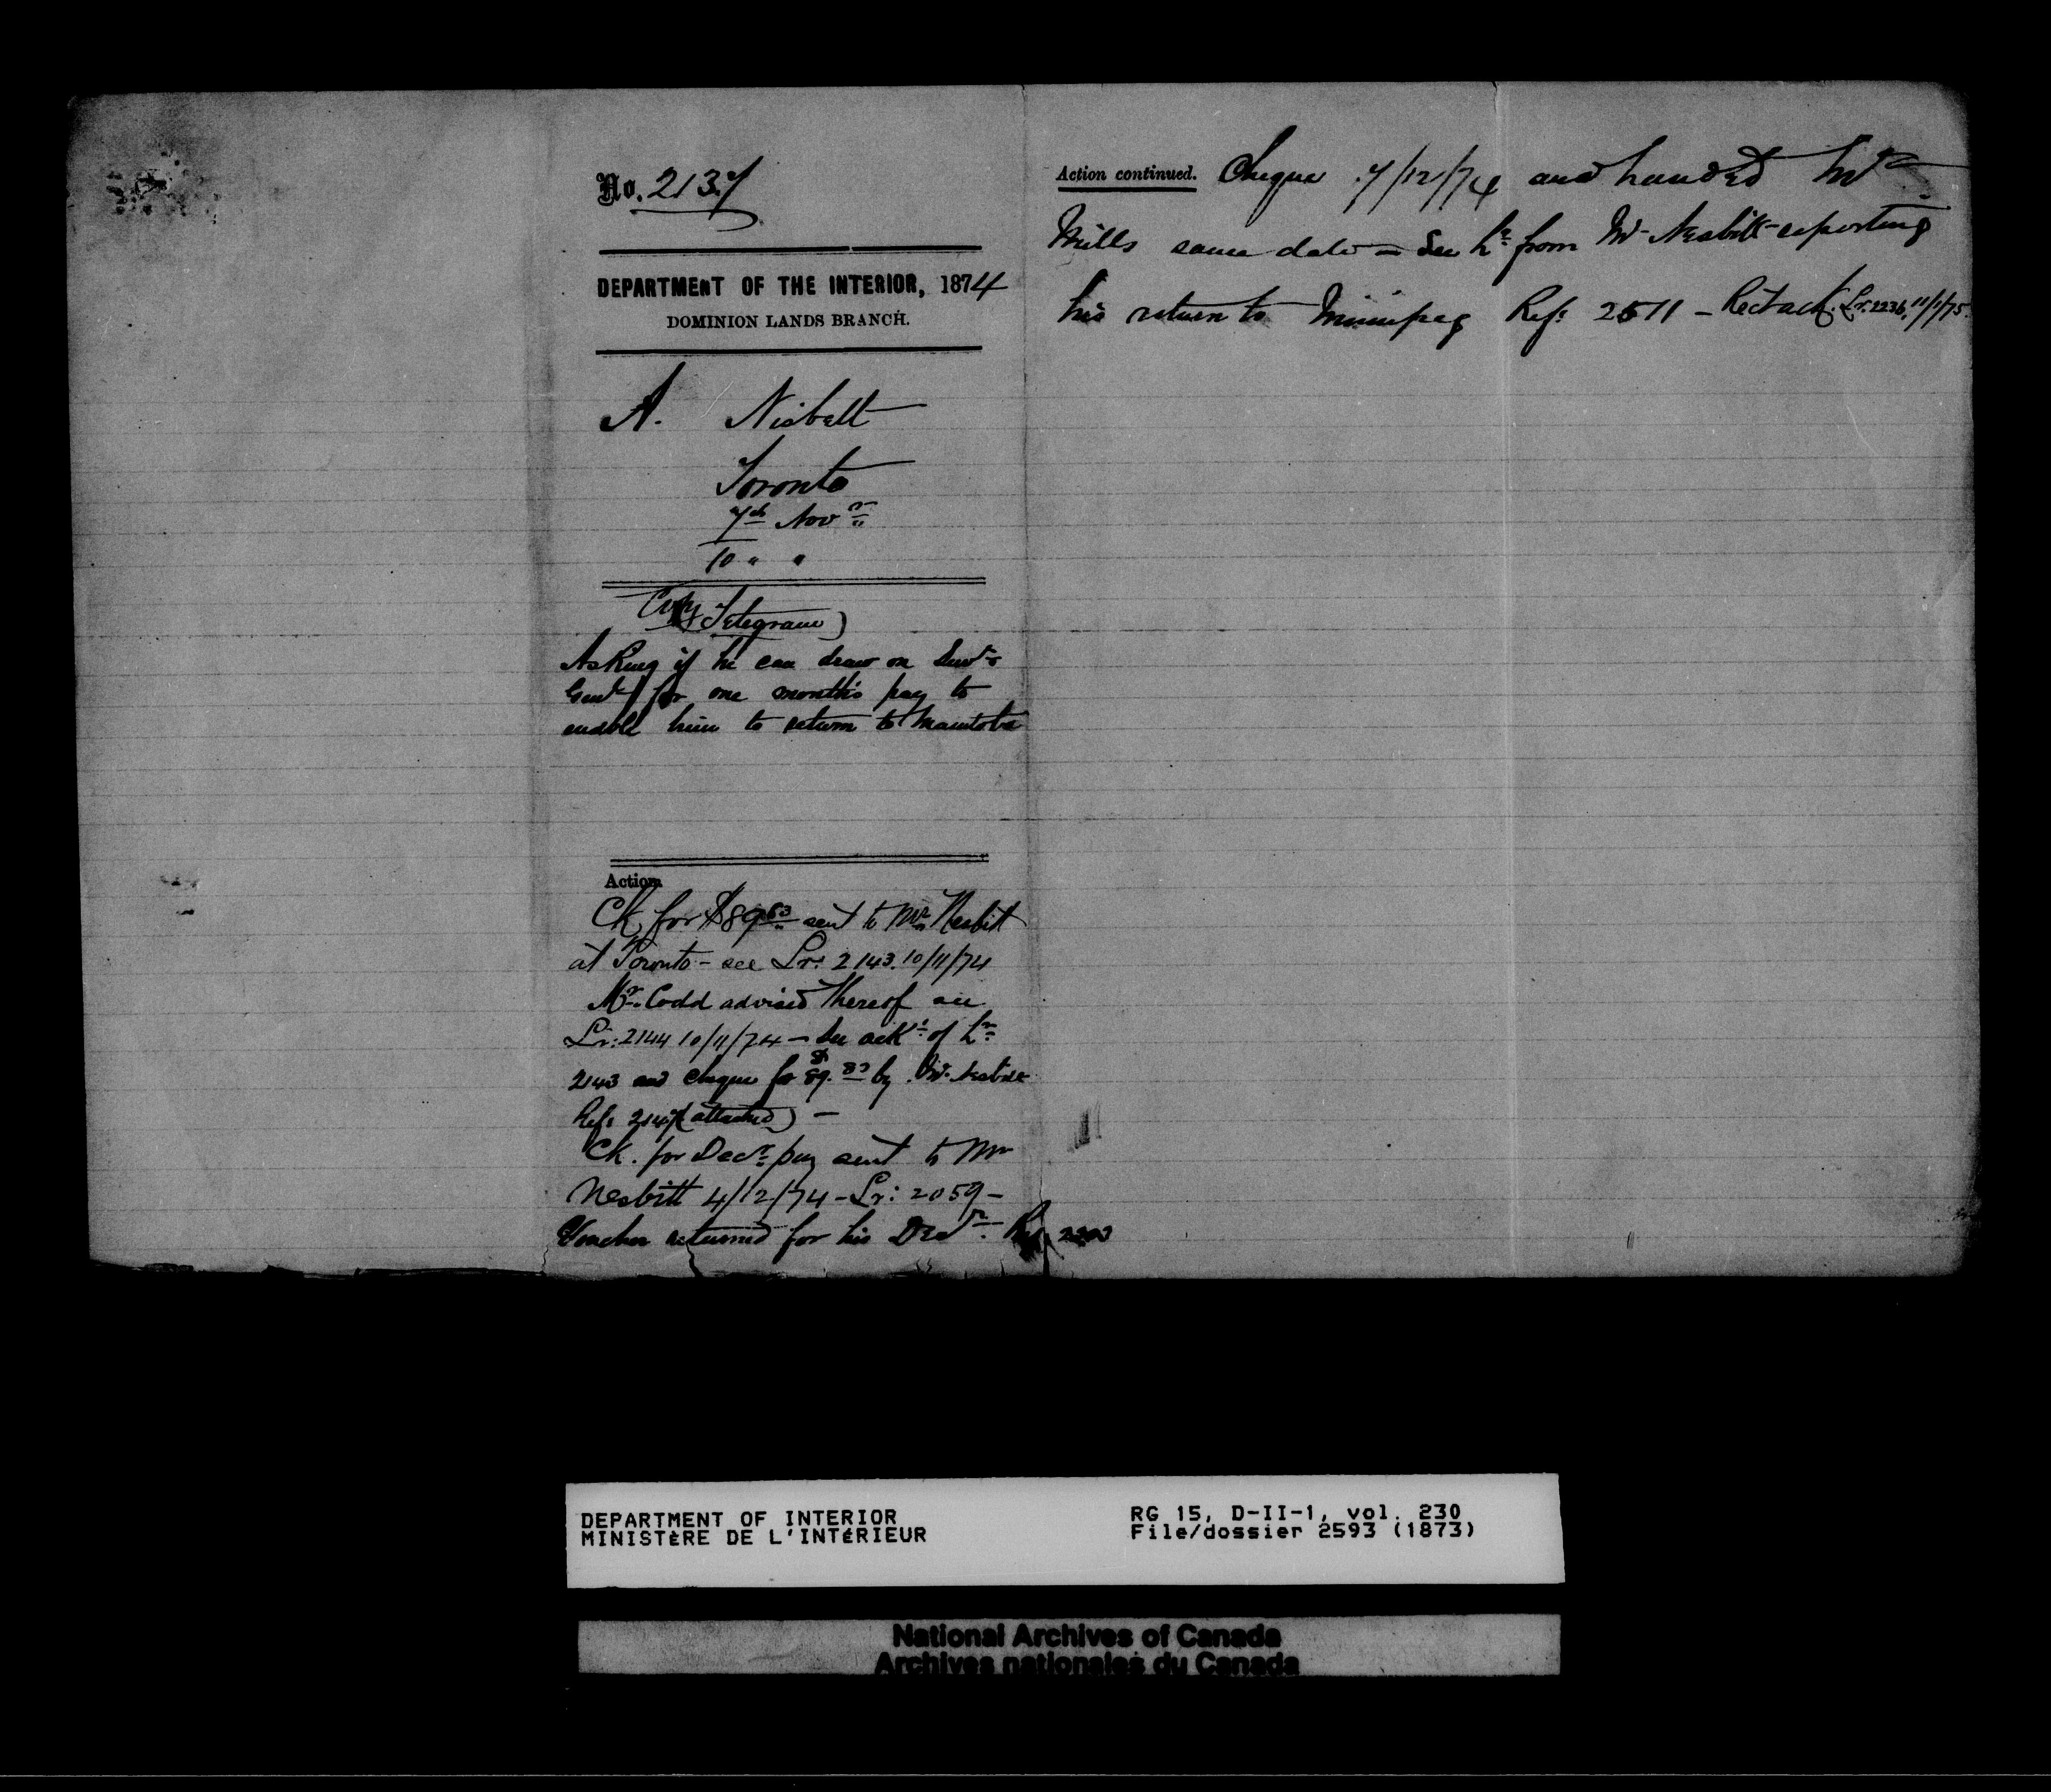 No. 2137
DEPARTMENT OF THE INTERIOR, 1874
DOMINION LANDS BRANCH.
A. Nisbett
Toronto
7th Novr
10 " "
Telegram)
Asking if he can draw on Survr
Genl for one month's pay to
enable him to return to Manitoba
Action
Ck for $89.83 sent to Mr Nesbitt
at Toronto - see Lr: 2143. 10/11/74
Mr. Codd advised thereof see
Lr: 2144 10/11/74 - See ackt of Lr
2143 and cheque for $89.83 by Mr. Nesbitt
Ref: 2147 (attached) -
Ck. for Decr pay sent to Mr
Nesbitt 4/12/74 - Lr: 2059 -
Voucher returned for his Decr.
Action continued. Cheque 7/12/74 and handed Mr
Mills same date - See Lr from Mr Nesbitt reporting
his return to Winnipeg Ref: 2511 - Rect ack. Lr. 2236, 11/1/75.
DEPARTMENT OF INTERIOR
MINISTÈRE DE L'INTÉRIEUR
RG 15, D-II-1, vol. 230
File/dossier 2593 (1873)
National Archives of Canada
Archives nationales du Canada